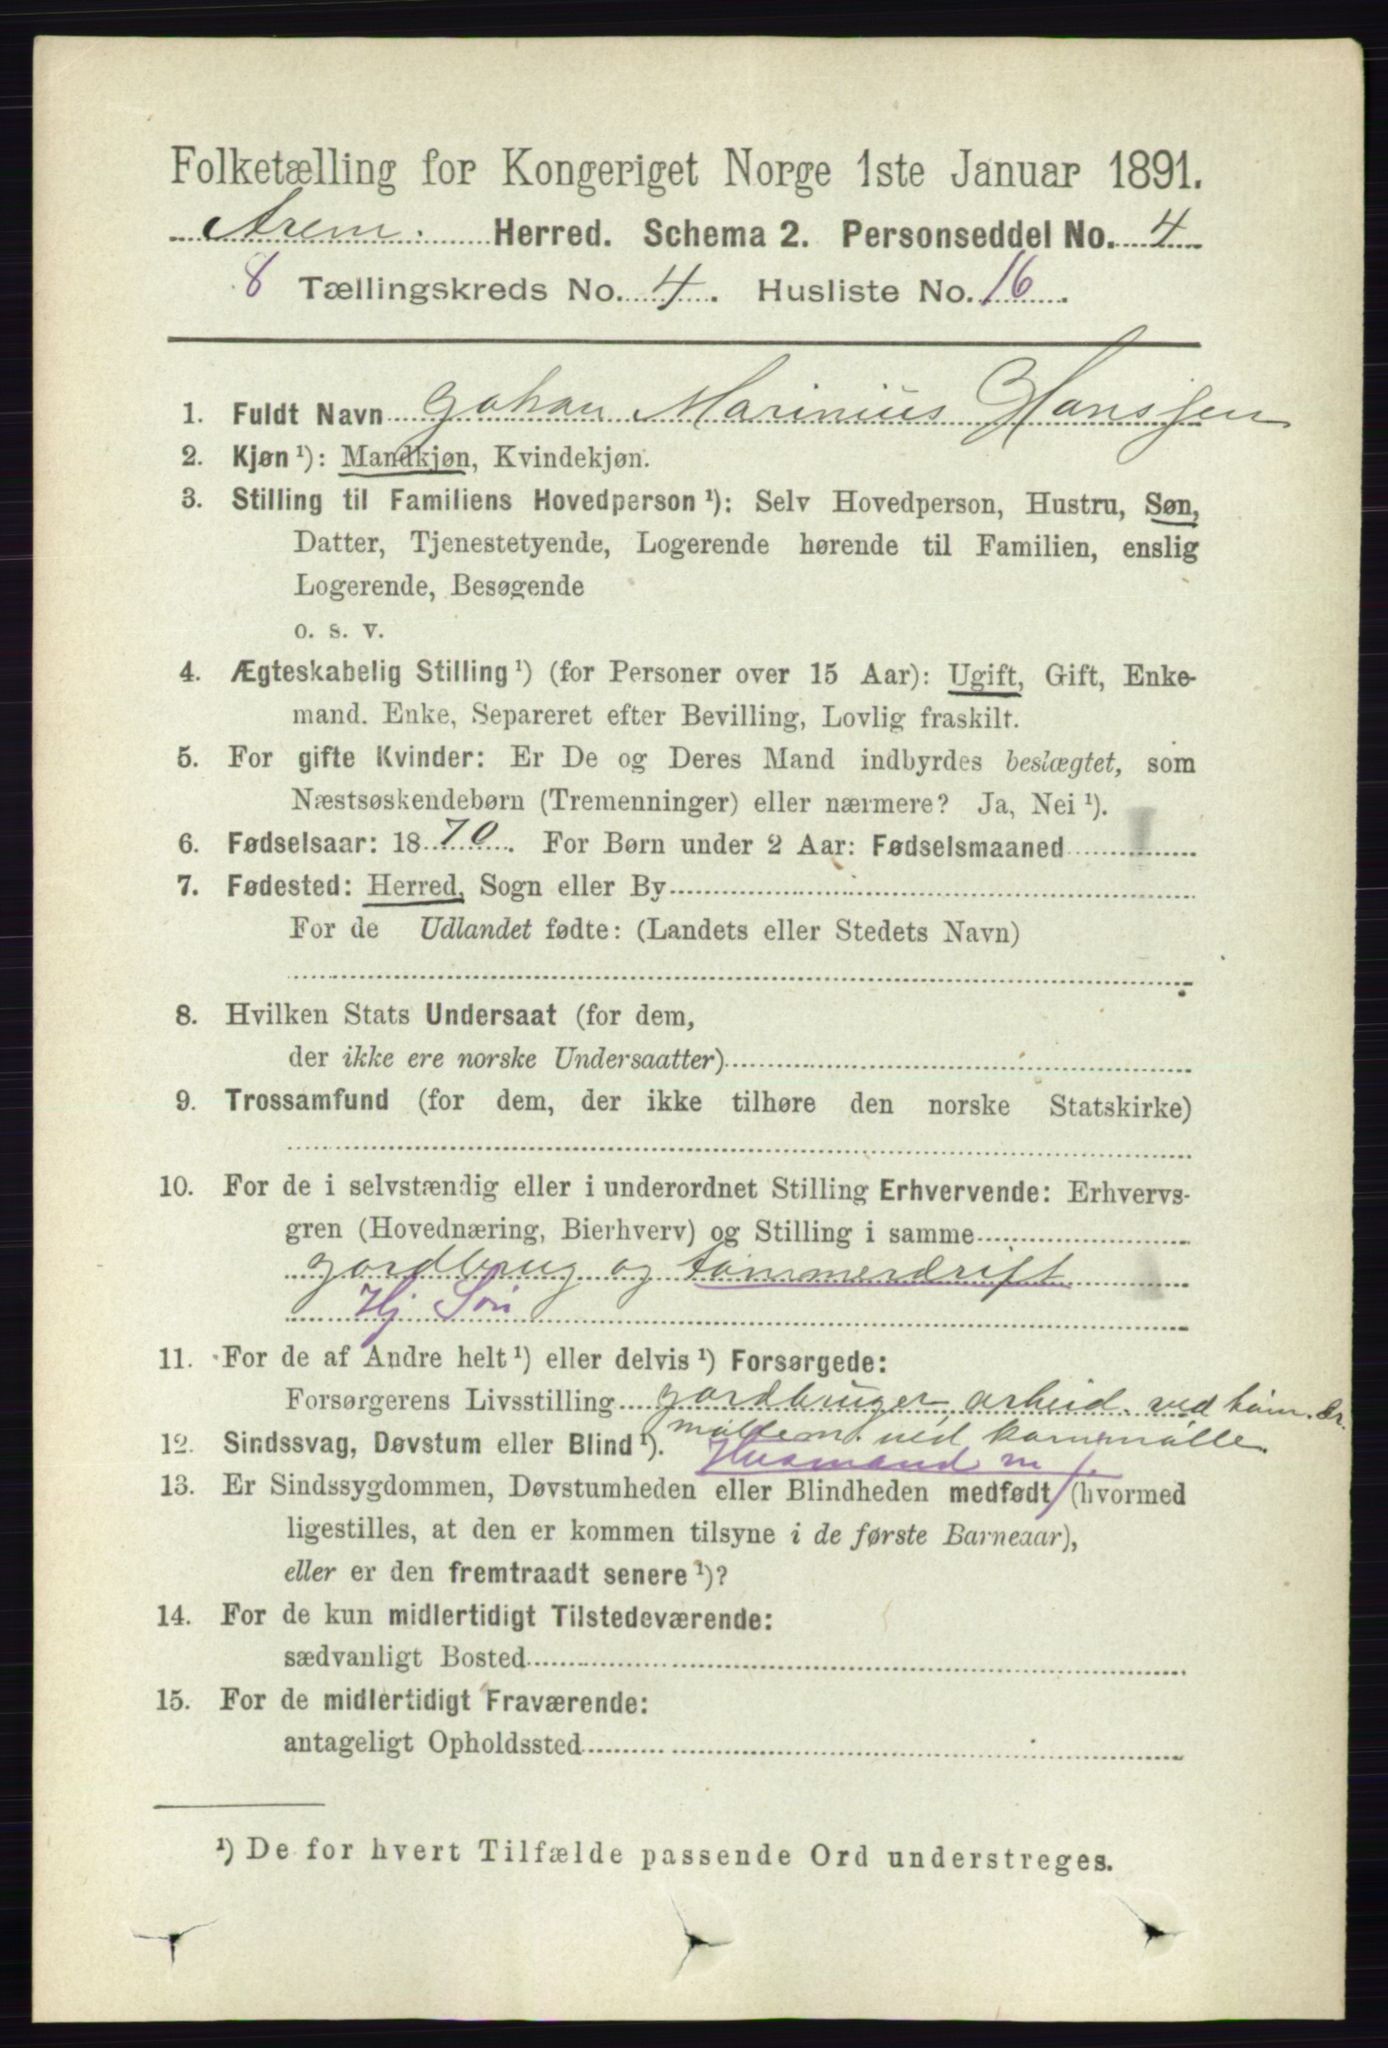 Folketælling for Kongeriget Norge 1ste Januar 1891.
Arem. Herred. Schema 2. Personseddel No. 4
8 Tællingskreds No. 4. Husliste No. 16.
1. Fuldt Navn Johan Marinius Hanssen
2. Kjøn ¹): Mandkjøn, Kvindekjøn.
3. Stilling til Familiens Hovedperson ¹): Selv Hovedperson, Hustru, Søn,
Datter, Tjenestetyende, Logerende hørende til Familien, enslig
Logerende, Besøgende
o. s. v.
4. Ægteskabelig Stilling ¹) (for Personer over 15 Aar): Ugift, Gift, Enke-
mand. Enke, Separeret efter Bevilling, Lovlig fraskilt.
5. For gifte Kvinder: Er De og Deres Mand indbyrdes beslægtet, som
Næstsøskendebørn (Tremenninger) eller nærmere? Ja, Nei ¹).
6. Fødselsaar: 1870. For Børn under 2 Aar: Fødselsmaaned
7. Fødested: Herred, Sogn eller By
For de Udlandet fødte: (Landets eller Stedets Navn)
8. Hvilken Stats Undersaat (for dem,
der ikke ere norske Undersaatter)
9. Trossamfund (for dem, der ikke tilhøre den norske Statskirke)
10. For de i selvstændig eller i underordnet Stilling Erhvervende: Erhvervs-
gren (Hovednæring, Bierhverv) og Stilling i samme
gardbrug og tømmerdrift
Hj Søn
11. For de af Andre helt ¹) eller delvis ¹) Forsørgede:
Forsørgerens Livsstilling gardbruger arbeid. ved tøm. dr.
ved kornmølle
12. Sindssvag, Døvstum eller Blind ¹).
Husmand m j.
13. Er Sindssygdommen, Døvstumheden eller Blindheden medfødt (hvormed
ligestilles, at den er kommen tilsyne i de første Barneaar),
eller er den fremtraadt senere ¹)?
14. For de kun midlertidigt Tilstedeværende:
sædvanligt Bosted
15. For de midlertidigt Fraværende:
antageligt Opholdssted
¹) De for hvert Tilfælde passende Ord understreges.